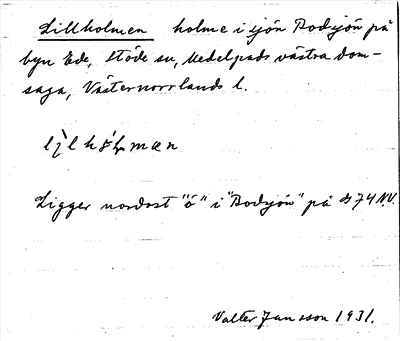 Lillholmen holme i sjön Bodsjön på
byn Ede, Stöde sn, Medelpads västra dom-
saga, Västernorrlands l.
Ligger nordost "ö" i "Bodsjön" på 74 NV.
Valter Jansson 1931.